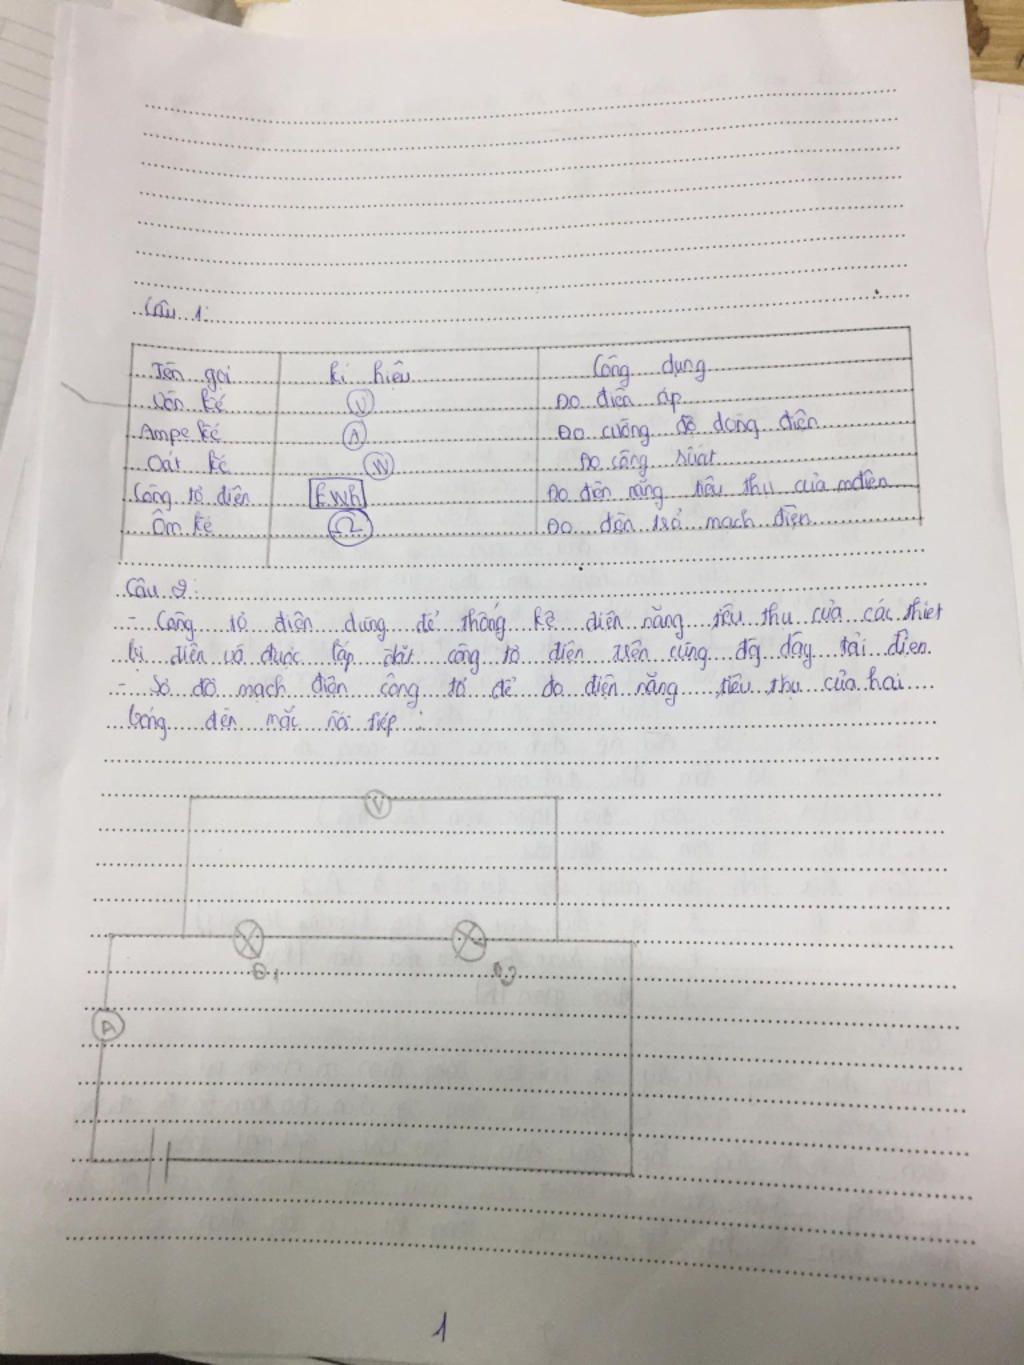 Câu 1:
Tên gọi kí hiệu Công dụng
Vôn kế V Đo điện áp
Ampe kế A Đo cường độ dòng điện
Oát kế W Đo công suất
Công tơ điện kWh Đo điện năng tiêu thụ của mđiện
Ôm kế Ω Đo điện trở mạch điện
Câu 2:
- Công tơ điện dùng để thống kê điện năng tiêu thụ của các thiết
bị điện và được lắp đặt công tơ điện trên cùng đg dây tải điện.
- Sơ đồ mạch điện công tơ để đo điện năng tiêu thụ của hai
bóng đèn mắc nối tiếp:
V
Đ1 Đ2
A
1